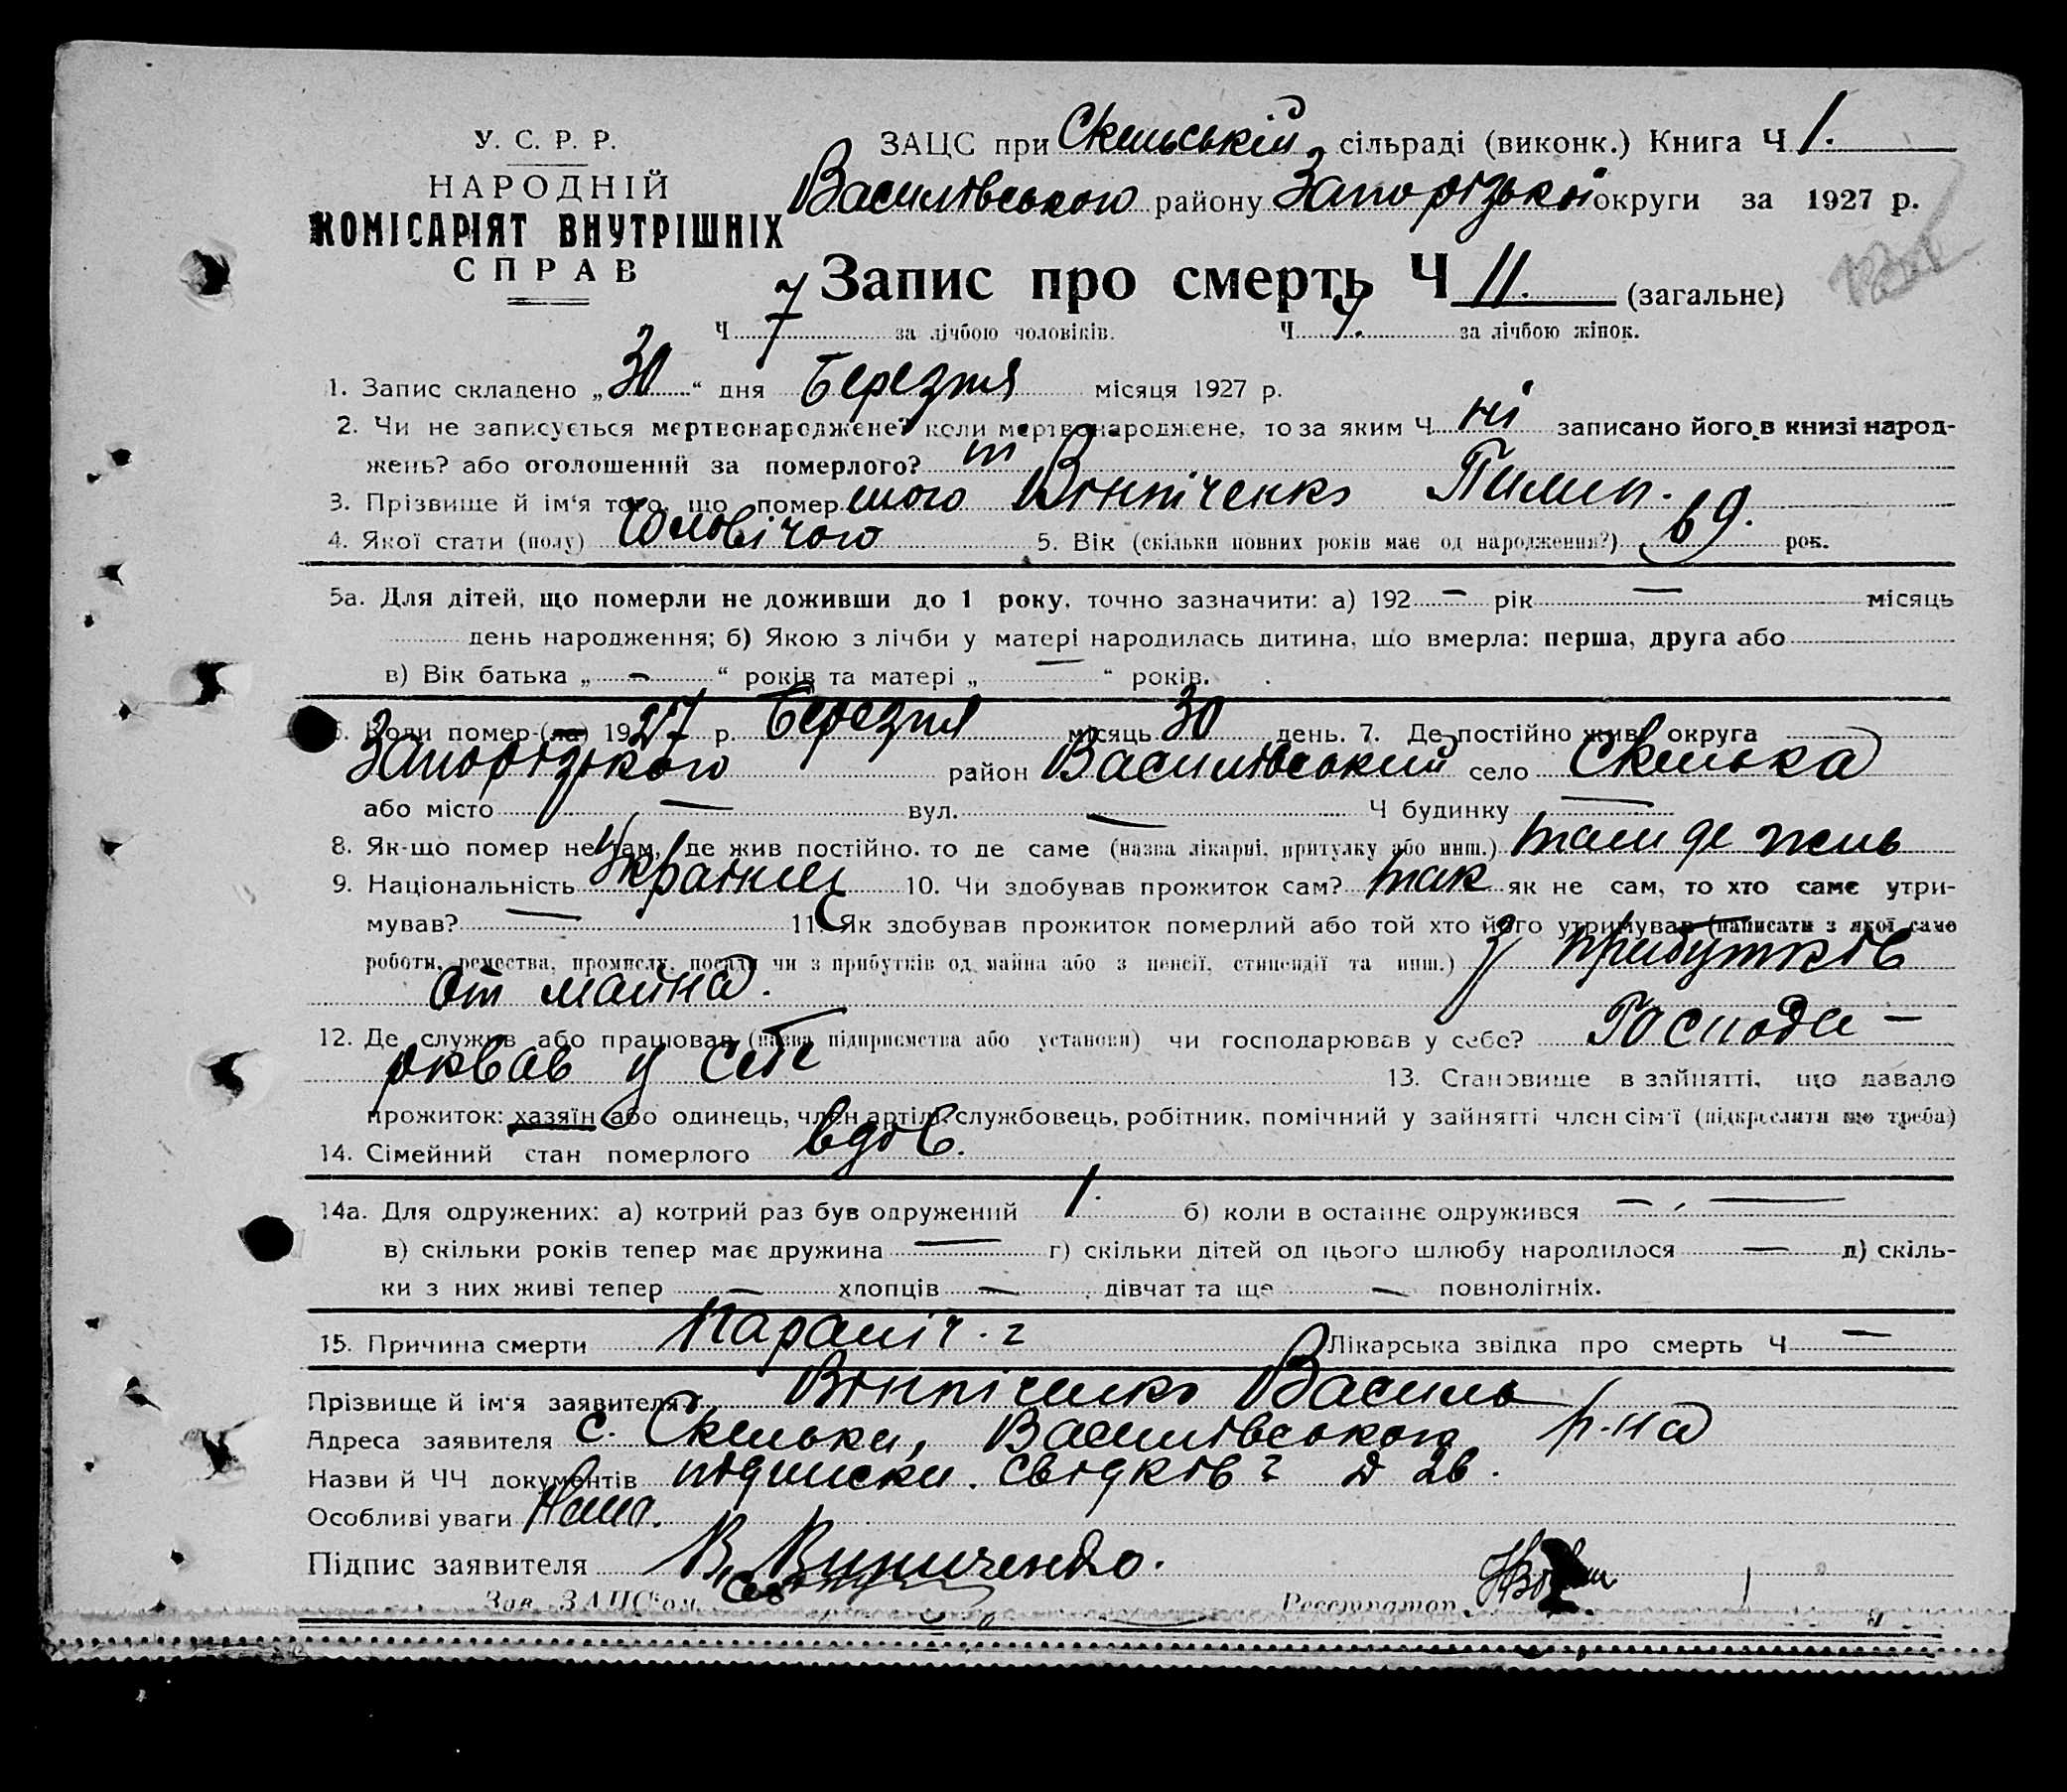 У. С. Р. Р.
НАРОДНІЙ
КОМІСАРІЯТ ВНУТРІШНІХ
СПРАВ
ЗАЦС при Скельській сільраді (виконк.) Книга Ч 1.
Василівського району Запорізької округи за 1927 р.
Запис про смерть Ч 11. (загальне)
Ч 7 за лічбою чоловіків. Ч 4. за лічбою жінок.
1. Запис складено „30“ дня Березня місяця 1927 р.
2. Чи не записується мертвонароджене? коли мертвонароджене, то за яким Ч ні записано його в книзі народ-
жень? або оголошений за померлого?
3. Прізвище й ім'я того, що помер шого Вінніченко Пилип.
4. Якої стати (полу) Чоловічого 5. Вік (скільки повних років має од народження?) 69. рок.
5а. Для дітей, що померли не доживши до 1 року, точно зазначити: а) 192 — рік — місяць
день народження; б) Якою з лічби у матері народилась дитина, що вмерла: перша, друга або
в) Вік батька „ — “ років та матері „ — “ років.
6. Коли помер-(ла) 1927 р. Березня місяць 30 день. 7. Де постійно жив округа
Запорізького район Василівський село Скелька
або місто — вул. — Ч будинку —
8. Як-що помер не там, де жив постійно, то де саме (назва лікарні, притулку або инш.) там де жив
9. Національність Українец 10. Чи здобував прожиток сам? так як не сам, то хто саме утри-
мував? — 11. Як здобував прожиток померлий або той хто його утримував (написати з якої саме
роботи, ремества, промислу, посади чи з прибутків од майна або з пенсії, стипендії та инш.) З прибутків
от майна.
12. Де служив або працював (назва підприємства або установи) чи господарював у себе? Господа-
рював у себе 13. Становище в зайнятті, що давало
прожиток: хазяїн або одинець, член артілі, службовець, робітник, помічний у зайнятті член сім'ї (підкреслити що треба)
14. Сімейний стан померлого вдов.
14а. Для одружених: а) котрий раз був одружений 1. б) коли в останнє одружився —, —
в) скільки років тепер має дружина — г) скільки дітей од цього шлюбу народилося — д) скіль-
ки з них живі тепер — хлопців — , дівчат та ще — повнолітніх.
15. Причина смерти Параліч Лікарська звідка про смерть Ч —
Прізвище й ім'я заявителя Вінніченко Василь
Адреса заявителя с. Скельки, Василівського р-на
Назви й ЧЧ документів підписки свідків
Особливі уваги
Підпис заявителя В. Виниченко.
Зав. ЗАЦС'ом Реєстратор